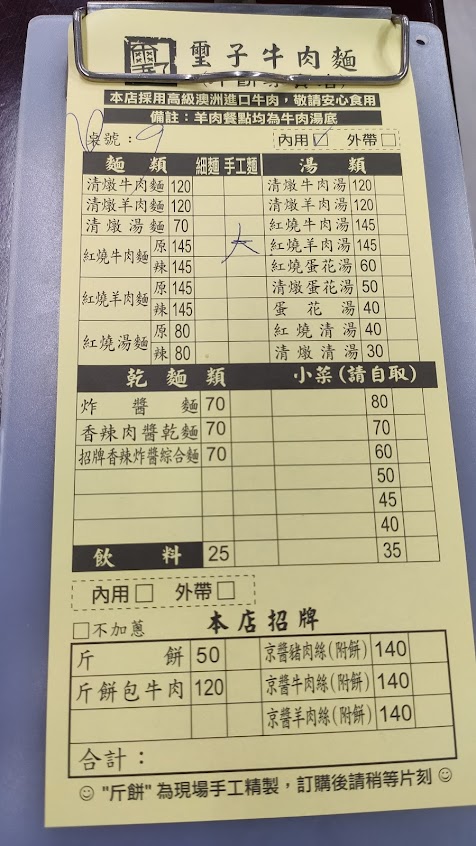 璽子牛肉麵
本店採用高級澳洲進口牛肉，敬請安心食用
備註：羊肉餐點均為牛肉湯底
桌號：9 內用☑ 外帶□
麵類 細麵 手工麵 湯類
清燉牛肉麵 120 清燉牛肉湯 120
清燉羊肉麵 120 清燉羊肉湯 120
清燉湯麵 70 紅燒牛肉湯 145
紅燒牛肉麵 原 145 大 紅燒羊肉湯 145
辣 145 紅燒蛋花湯 60
紅燒羊肉麵 原 145 清燉蛋花湯 50
辣 145 蛋花湯 40
紅燒湯麵 原 80 紅燒清湯 40
辣 80 清燉清湯 30
乾麵類 小菜(請自取)
炸醬麵 70 80
香辣肉醬乾麵 70 70
招牌香辣炸醬綜合麵 70 60
50
45
40
飲料 25 35
內用□ 外帶□
□不加蔥 本店招牌
斤餅 50 京醬豬肉絲(附餅) 140
斤餅包牛肉 120 京醬牛肉絲(附餅) 140
京醬羊肉絲(附餅) 140
合計：
☺ "斤餅" 為現場手工精製，訂購後請稍等片刻 ☺